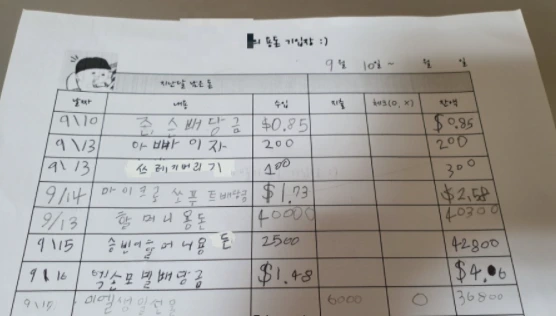 의 용돈 기입장 :)
9월 10일 ~ 월 일
지난달 남은 돈
날짜 내용 수입 지출 체크(O, X) 잔액
9\10 존슨배당금 $0.85 $0.85
9\13 아빠이자 200 200
9\13 쓰레기버리기 100 300
9/14 마이크로 소프트배당금 $1.73 $2.58
9/13 할머니용돈 40000 40300
9\15 승빈이할머니용돈 2500 42800
9\16 엑손모빌배당금 $1.48 $4.06
6000 O 36800